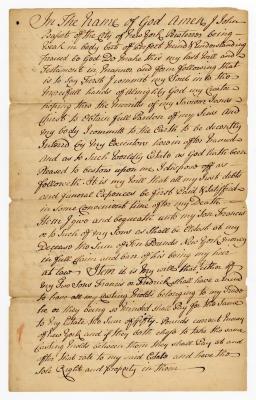 In The Name of God Amen, I John
Bassett of the City of New York Brasierer being
Weak in body but of Perfect Mind & Understanding
Praised be God Do Make this my last Will and
Testament in Manner and form following that
is to Say First I committ my Soul into the
Mercifull hands of Almighty God my Creator
hoping thro the Merritts of my Saviour Jesus
Christ to Obtain full Pardon of my Sins and
My body I committ to the Earth to be decently
Interred by my Executors herein after Named
And as to Such Worldly Estate as God hath been
Pleased to bestow upon me I dispose off as
Followeth It is my Will that all my Just debts
and funeral Expences be first Paid & Satisfied
in Some Convenient time after my Death
Item I give and bequeath unto my Son Francis
or to Such of my Sons as Shall be Eldest at my
Decease the Sum of Ten Pounds New York Money
in full claim and barr of his being my heir
at law Item it is my Will that Either of
My Two Sons Francis or Frederick Shall have a
to have all my casting Molds belonging to my Trade
he or they being so Minded Shall Pay for the Same
to my Estate the Sum of Fifty Pounds current Money
of New York and if they both chuse to take the Same
Casting Molds between them they Shall Pay at and
after that rate to my Said Estate and have the
Sole Right and Property in them